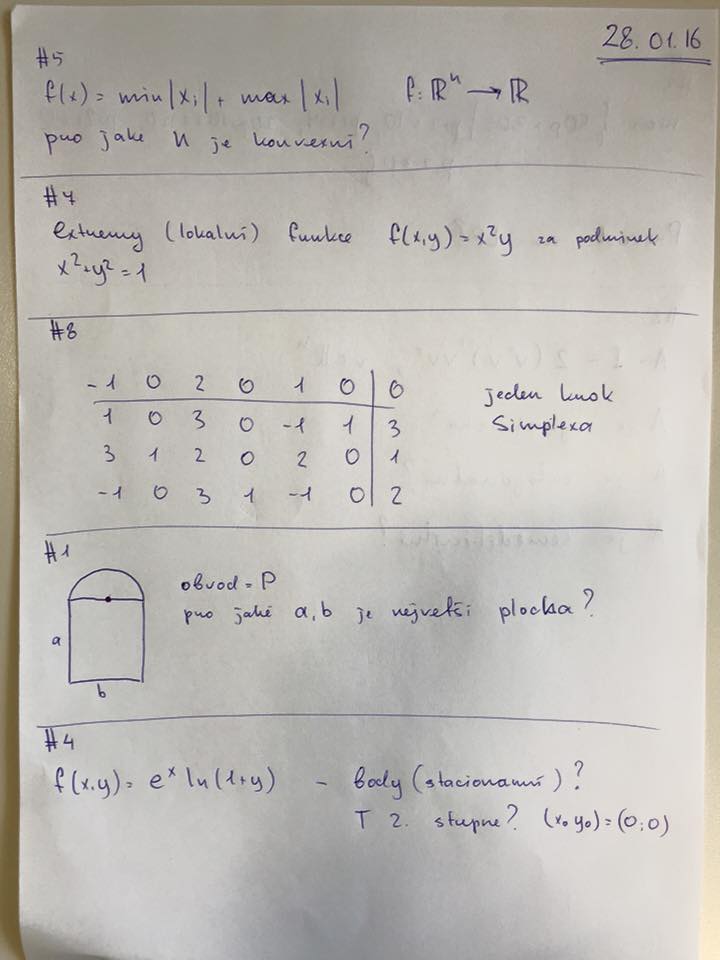 28.01.16
#5
f(x) = min|xᵢ| + max|xᵢ| f: ℝⁿ → ℝ
pro jake n je konvexní?
#7
extremy (lokalní) funkce f(x,y) = x²y za podminek
x²+y²=1
#8
-1 0 2 0 1 0 | 0 jeden krok
1 0 3 0 -1 1 | 3 Simplexa
3 1 2 0 2 0 | 1
-1 0 3 1 -1 0 | 2
#1
obvod = P
pro jaké a,b je nejvetší plocha?
a
b
#4
f(x,y) = eˣ ln(1+y) - body (stacionarní)?
T 2. stupne? (x₀ y₀) = (0;0)